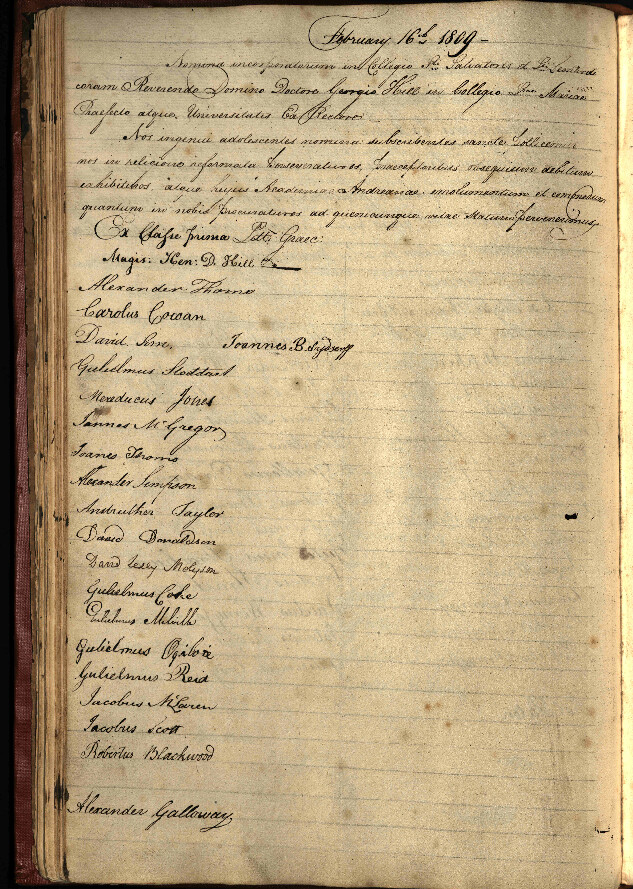 February 16th 1809 –
Nomina incorporatorum in Collegio Sti Salvatoris et Sti Leonardi
coram Reverendo Domino Doctore Georgio Hill in Collegio Stae Mariae
Praefecto atque Universitatis Rectore
Nos ingenui adolescentes nomina subscribentes sancte pollicemur
nos in religione reformata perseveraturos, Praeceptoribus obsequium debitum
exhibituros, atque hujus Academiae Andreanae emolumentum et commodum
quantum in nobis procuraturos ad quemcunque vitae statum pervenerimus
Ex Classe prima Litt. Graec.
Magis: Hen: D. Hill
Alexander Thoms
Carolus Cowan
David Sim. Joannes B. Sydserff
Gulielmus Stoddart
Mereducus Jones
Joannes McGregor
Joanes Thoms
Alexander Simpson
Anstruther Taylor
David Donaldson
David Molyson
Gulielmus Coke
Gulielmus Melville
Gulielmus Ogilvie
Gulielmus Reid
Jacobus McLaren
Jacobus Scott
Robertus Blackwood
Alexander Galloway